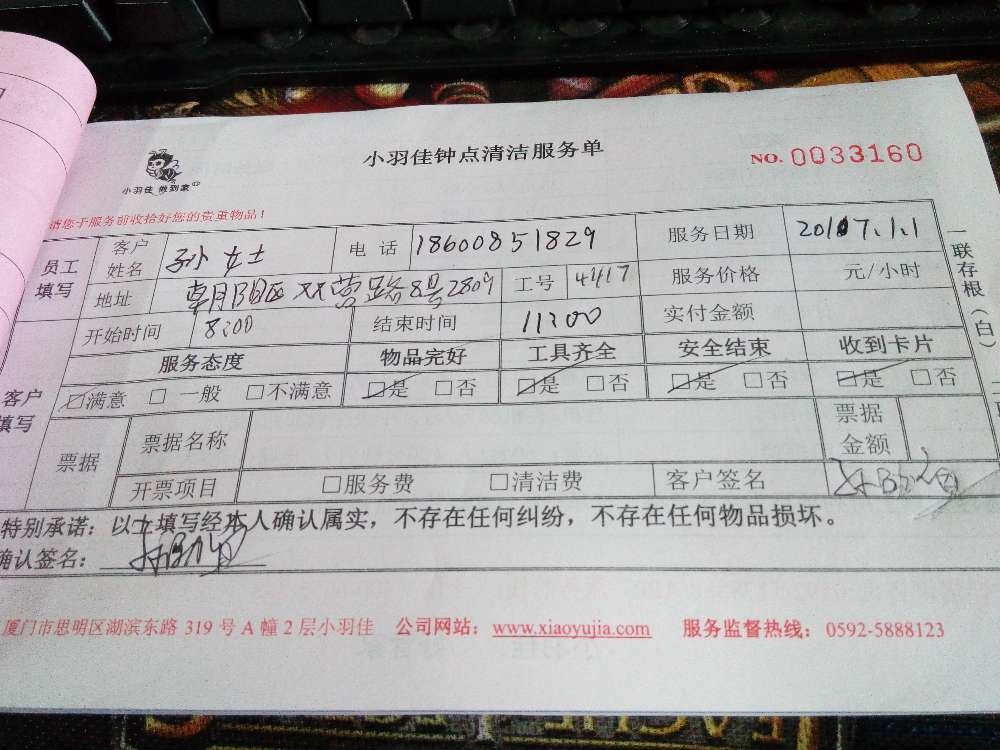 小羽佳钟点清洁服务单
NO. 0033160
小羽佳 做到家
请您于服务前收拾好您的贵重物品！
员工填写 客户姓名 孙女士 电话 18600851829 服务日期 2017.1.1
地址 朝阳区双营路8号2809 工号 4417 服务价格 元/小时
开始时间 8:00 结束时间 11:00 实付金额
客户填写 服务态度 物品完好 工具齐全 安全结束 收到卡片
☑满意 □一般 □不满意 ☑是 □否 ☑是 □否 ☑是 □否 ☑是 □否
票据 票据名称 票据金额
开票项目 □服务费 □清洁费 客户签名
特别承诺：以上填写经本人确认属实，不存在任何纠纷，不存在任何物品损坏。
确认签名：
厦门市思明区湖滨东路 319 号 A 幢 2 层小羽佳 公司网站：www.xiaoyujia.com 服务监督热线：0592-5888123
一联存根（白）